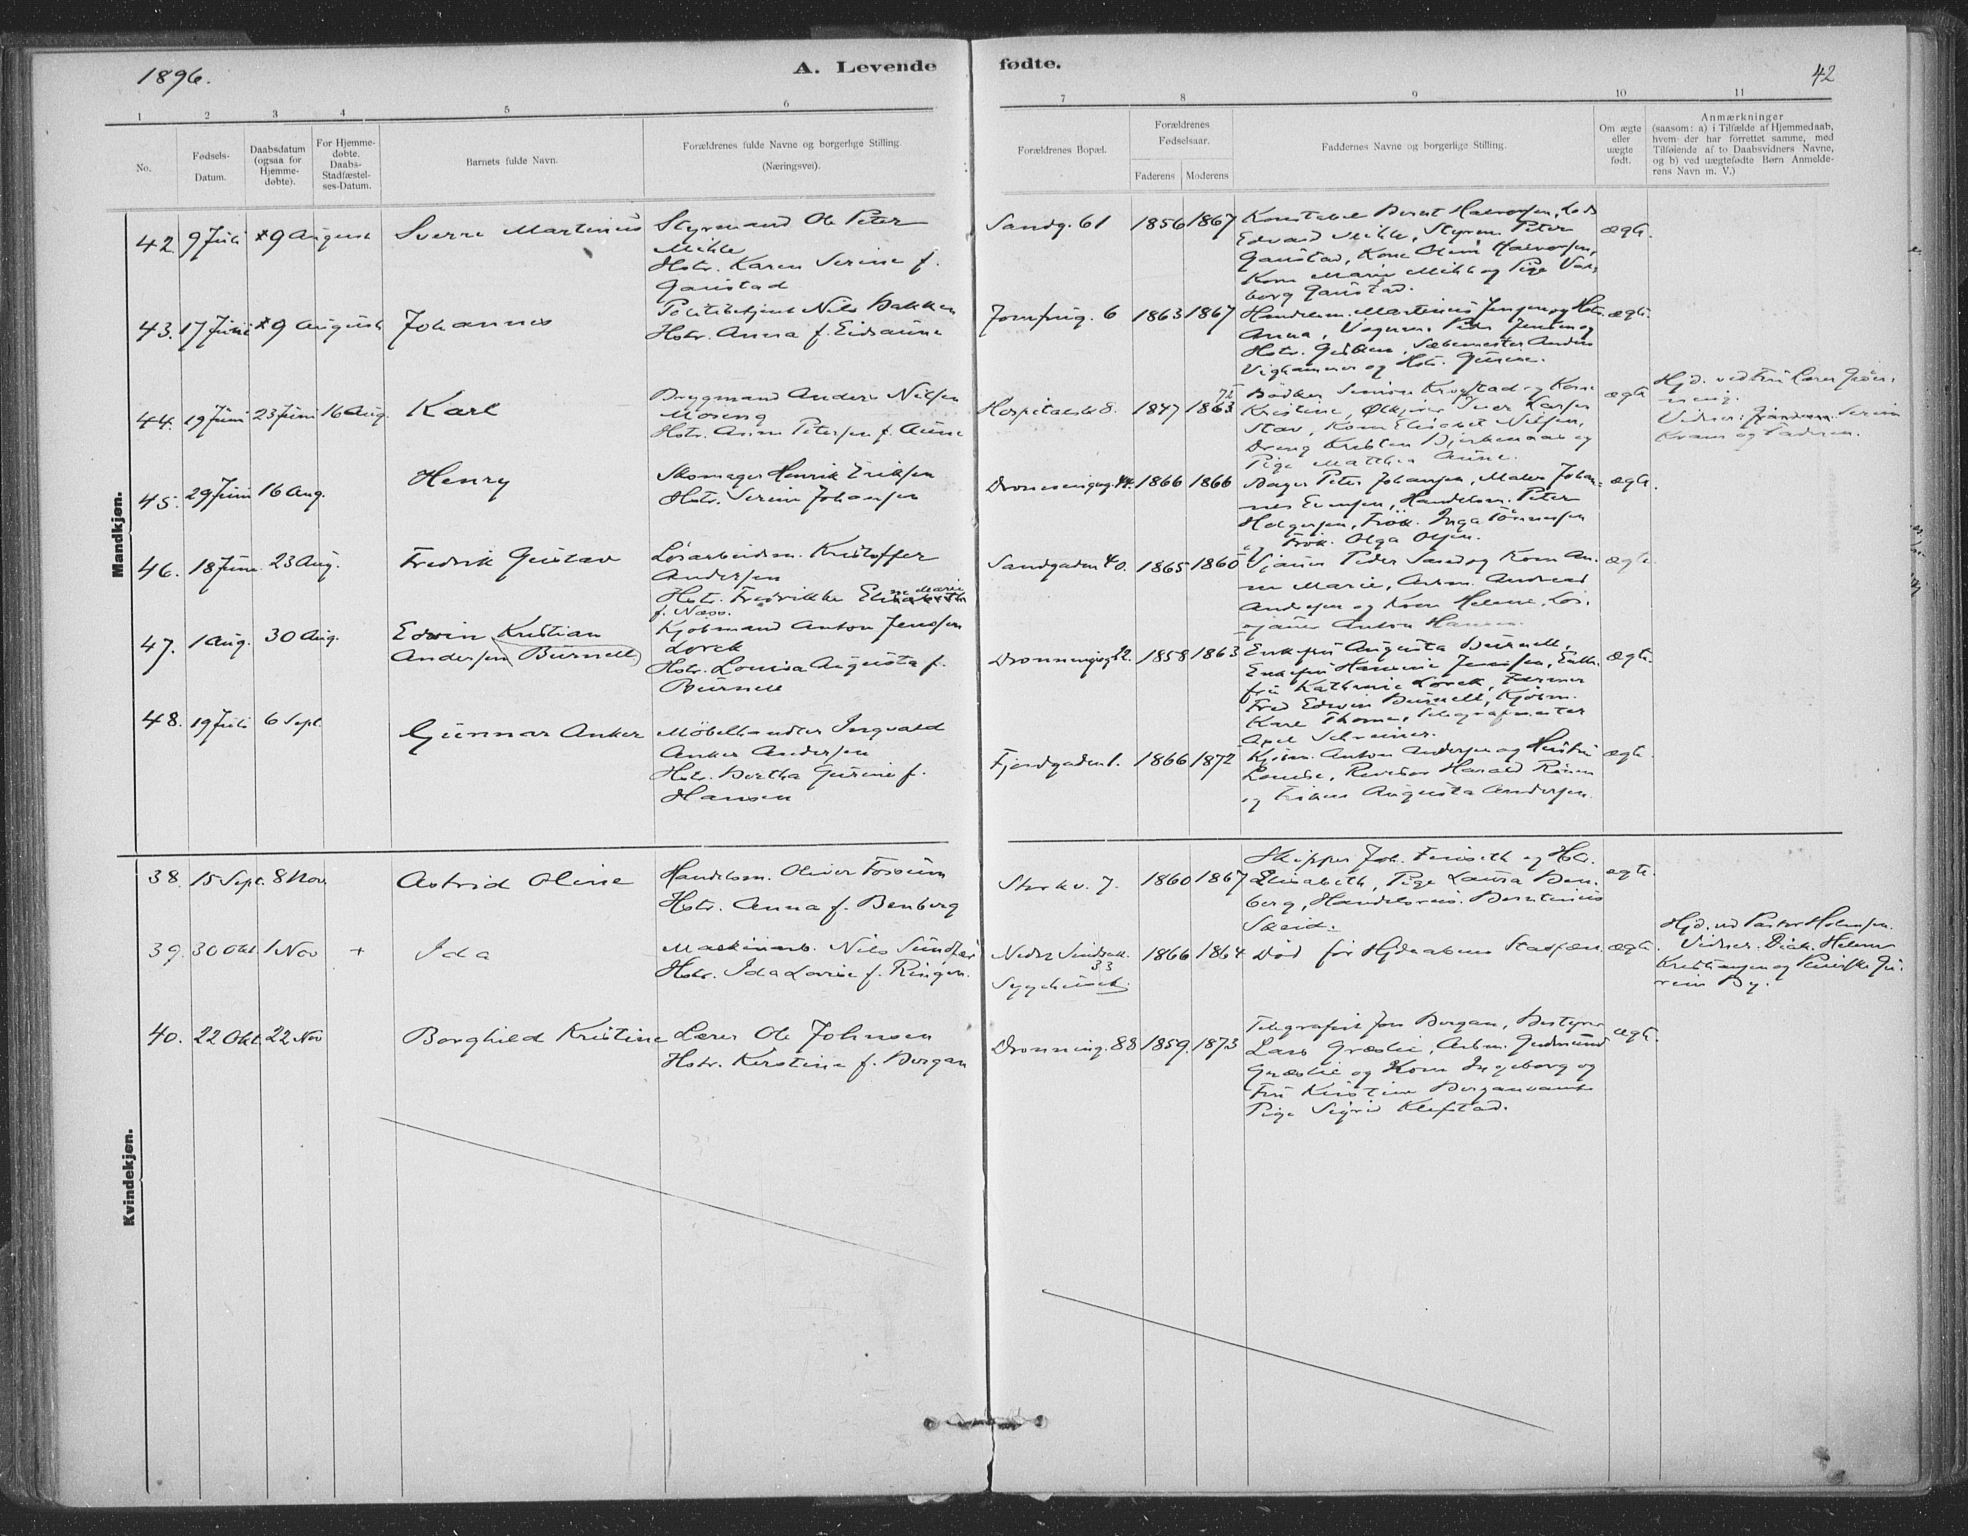 1896.
A. Levende fødte.
42
1 2 3 4 5 6 7 8 9 10 11
No.
Fødsels-
Datum.
Daabsdatum
(ogsaa for
Hjemme-
døbte).
For Hjemme-
døbte.
Daabs-
Stadfæstel-
ses-Datum.
Barnets fulde Navn.
Forældrenes fulde Navne og borgerlige Stilling.
(Næringsvei).
Forældrenes Bopæl.
Forældrenes
Fødselsaar.
Faderens Moderens
Faddernes Navne og borgerlige Stilling.
Om ægte
eller
uægte
født.
Anmærkninger
(saasom: a) i Tilfælde af Hjemmedaab,
hvem der har forrettet samme, med
Tilføiende af to Daabsvidners Navne,
og b) ved uægtefødte Børn Anmelde-
rens Navn m. V.)
Mandkjøn.
42. 9 Juli 9 August
Sverre Martinius
Styrmand Ole Peter
Mikle
Hstr. Karen Serine f.
Gaustad
Sandg. 61
1856 1867
Konstabel Bernt Halvorsen,
Edvard Mikle, Styrm. Peter
Gaustad, Kone Oline Halvorsen,
Kone Marie Mikle og Pige Val-
borg Gaustad.
ægte.
43. 17 Juni 9 August
Johannes
Politibetjent Nils Bakken
Hstr. Anna f. Eidsaune
Jomfrug. 6
1863 1867
Handelsm. Martinius Jensen og Hstr.
Anna, Vognm. Peder Jensen og
Hstr. Gurine.
ægte.
44. 19 Juni 23 Juni 16 Aug.
Karl
Brygmand Anders Nilsen
Moseng
Hstr. Anne Petersen f. Aune
Hospitalsl 8.
1847 1863
Bødker Simon Krogstad og Kone
Kristine, Iver Larsen
Stav, Kone Elisabet Nilsen,
Dreng Kristen Bjerkenaas og
Pige Mathea Aune.
ægte
Hjd. ved Fru Lærer
Vidner: Serine
Kvam og Faderen.
45. 29 Juni 16 Aug.
Henry
Skomager Henrik Eriksen
Hstr. Serine Johansen
Dronningg. 44.
1866 1866
Bager Peter Johansen, Maler Johan-
nes Evensen, Handelsm. Peter
Holgersen, Frøk. Inga Tønnesen
Frøk. Olga Olsen.
ægte.
46. 18 June 23 Aug.
Fredrik Gustav
Løsarbeidsm. Kristoffer
Andersen
Hstr. Fredrikke Marie
f. Næss.
Sandgaden 40.
1865 1860
Sjauer Peder og Kone An-
ne Marie, Arbm. Andreas
Andersen og Kone Helene, Løs-
sjauer Anton Hansen.
ægte.
47. 1 Aug. 30 Aug.
Edwin Kristian
Andersen Burnell
Kjøbmand Anton Jenssen
Lorck
Hstr. Louisa Augusta f.
Burnell
Dronningg. 12.
1858 1863
Enkefru Augusta Burnell,
Enkefru Hansine Jenssen, Enke-
fru Kathrine Lorck, Farmer
Fred Edwin Burnell, Kjøbm.
Karl Thome, Telegrafmester
Axel Schreiner.
ægte.
48. 19 Juli 6 Sept
Gunnar Anker
Møbelhandler Ingvald
Anker Andersen
Hstr. Bertha Gurine f.
Hansen
Fjordgaden 1.
1866 1872
Kjøbm. Anton Andersen og Hustru
Louise, Revisor Harald
og Frøken Augusta Andersen.
ægte.
Kvindekjøn.
38. 15 Sept. 8 Nov
Astrid Oline
Handelsm. Oliver Fossum
Hstr. Anna f. Benberg
7.
1860 1867
Skipper Joh. og Hstr.
Elisabeth, Pige Laura Ben-
berg, Handelsreis. Berntinius
Skeid.
ægte.
39. 30 Okt. 1 Nov +
Ida
Maskinarb. Nils Sundfær
Hstr. Ida Lovise f. Ringen.
33
Sygehuset.
1866 1864
Død før Hjdaabens Stadfæst.
ægte.
Hjd. ved Pastor Holmsen.
Vidner: Diak. Helene
Kristiansen og Gu-
rine By.
40. 22 Okt. 22 Nov
Borghild Kristine
Lærer Ole Johnsen
Hstr. Kerstine f. Bergan
Dronning. 88
1859. 1873
Telegrafist Jon Bergan, Bestyrer
Lars Græslie, Arbm. Gudmund
Græslie og Kone Ingeborg og
Fru Kristine Bergan samt
Pige Sigrid Klefstad.
ægte.